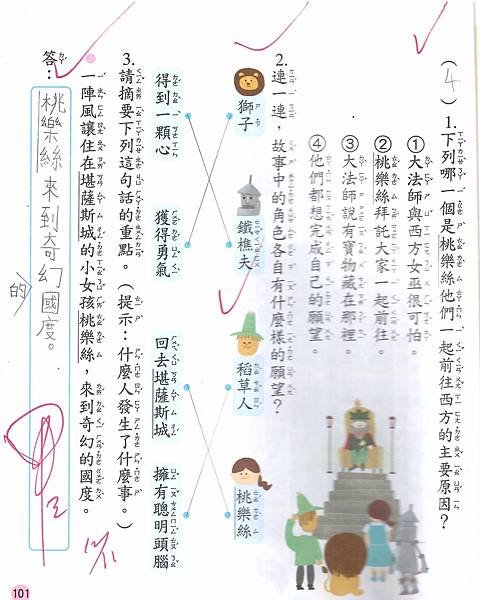 (4) 1.下列哪一個是桃樂絲他們一起前往西方的主要原因？
①大法師與西方女巫很可怕。
②桃樂絲拜託大家一起前往。
③大法師說有寶物藏在那裡。
④他們都想完成自己的願望。
2.連一連，故事中的角色各自有什麼樣的願望？
獅子
鐵樵夫
稻草人
桃樂絲
得到一顆心
獲得勇氣
回去堪薩斯城
擁有聰明頭腦
3.請摘要下列這句話的重點。（提示：什麼人發生了什麼事。）
一陣風讓住在堪薩斯城的小女孩桃樂絲，來到奇幻的國度。
答：
桃樂絲來到奇幻國度。
的
101